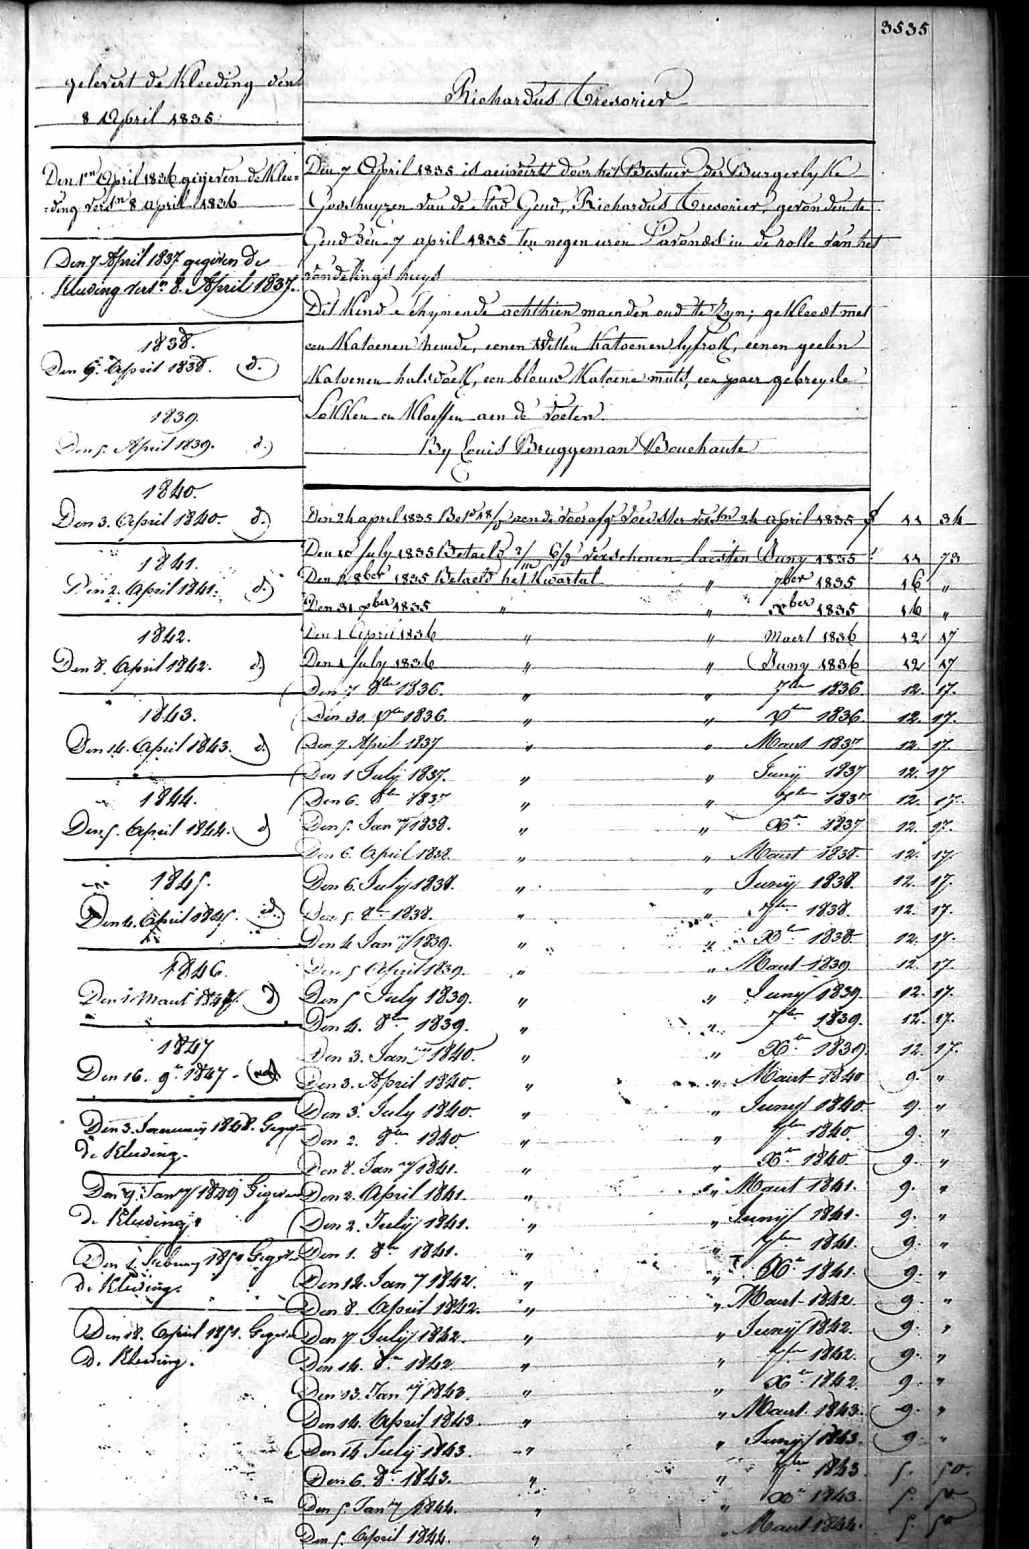 3535
gelevert de Kleeding den
8 April 1835
Richardus Tresorier
Den 1en April 1836 gegeven de Klee-
-ding versn 8 april 1836
Den 7 April 1837 gegeven de
Kleeding versn 8. April 1837.
1838.
Den 6. April 1838. d.
1839.
Den 5. April 1839. d.
1840.
Den 3. April 1840. d.
1841.
Den 2. April 1841. d.
1842.
Den 8. April 1842. d.
1843.
Den 14. April 1843. d.
1844.
Den 5. April 1844. d
1845.
Den 4. April 1845. d.
1846.
Den 1 Maert d
1847
Den 16. 9er 1847 -
Den 3. January 1848. Geg.
de Kleeding.
Den 9. Jany 1849 Gegeven
de Kleeding.
Den Gegev.
de Kleeding.
Den 18. April 1851. Gegeven
de Kleeding.
Den 7 April 1835 is aenveirt door het Bestuer der Burgerlyke
Godshuyzen van de Stad Gend, Richardus Tresorier, gevonden te
Gend den 7 april 1835 ten negen uren s'avonds in de rolle van het
vondelings huys
Dit Kind schynende achthien maenden oud te zyn; gekleedt met
een Katoenen hemde, eenen witten Katoenen lyfrok, eenen geelen
Katoenen halsdoek, een blauw Katoene muts, een paer gebreyde
Sokken en Kloeffen aen de voeten.
By Louis Bruggeman Bouchaute
Den 24 april 1835 aen de voorafg voedster versn 24 april 1835 11 34
Den 10 July 1835 Betaeld verschenen laesten Juny 1835 11 73
Den 8ber 1835 Betaeld het Kwartal " 7ber 1835 16 "
Den 31 xber 1835 " " xber 1835 16 "
Den 1 April 1836 " " Maert 1836 12 17
Den 1 July 1836 " " Juny 1836 12 17
Den 7 8ber 1836. " " 7ber 1836 12. 17.
Den 30. xber 1836. " " xber 1836 12. 17.
Den 7 April 1837 " " Maert 1837 12. 17.
Den 1 July 1837. " " Juny 1837 12. 17
Den 6. 8ber 1837 " " 7ber 1837 12. 17.
Den 5. Jany 1838. " " Xer 1837 12. 17.
Den 6. April 1838. " " Maert 1838. 12. 17.
Den 6. July 1838. " " Juny 1838. 12. 17.
Den 5. 8er 1838. " " 7ber 1838. 12. 17.
Den 4 Jany 1839. " " Xer 1838. 12. 17.
Den 5 April 1839. " " Maert 1839 12. 17.
Den 5 July 1839. " " Juny 1839. 12. 17.
Den 4. 8er 1839. " " 7ber 1839. 12. 17.
Den 3. Jany 1840. " " Xer 1839. 12. 17.
Den 3. April 1840. " " Maert 1840 9. "
Den 3 July 1840. " " Juny 1840 9. "
Den 2. 8er 1840 " " 7ber 1840 9. "
Den 8. Jany 1841. " " Xer 1840 9. "
Den 2. April 1841. " " Maert 1841. 9. "
Den 2. July 1841. " " Juny 1841. 9. "
Den 1. 8er 1841. " " 7ber 1841. 9. "
Den 14. Jany 1842. " " Xer 1841. 9. "
Den 8. April 1842. " " Maert 1842. 9. "
Den 7 July 1842. " " Juny 1842. 9. "
Den 14. 8er 1842. " " 7ber 1842. 9. "
Den 13. Jany 1843. " " Xer 1842. 9. "
Den 14. April 1843. " " Maert 1843. 9. "
Den 14 July 1843. " " Juny 1843. 9. "
Den 6. 8er 1843. " " 7ber 1843 5. 50.
Den 5. Jany 1844. " " Xer 1843. 5. 50
Den 5. April 1844. " " Maert 1844. 5. 50